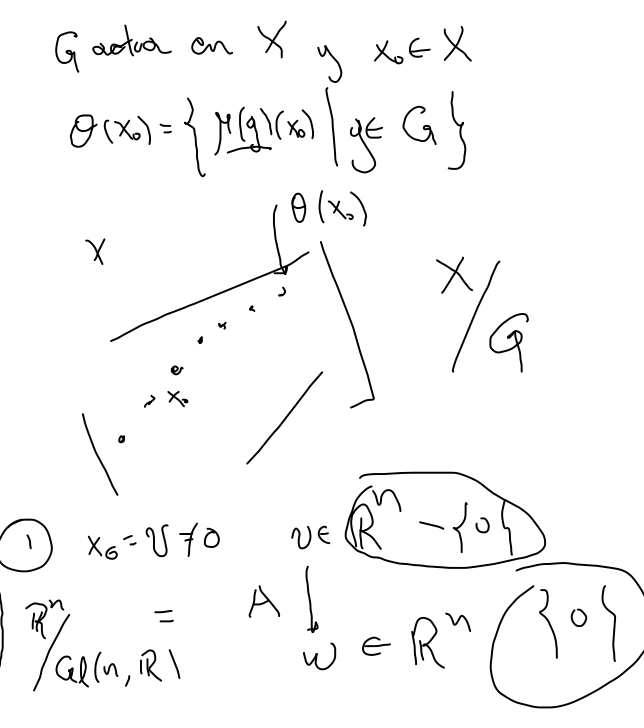 G actua en X y x₀ ∈ X
θ(x₀) = { μ(g)(x₀) | g ∈ G }
θ(x₀)
X
X/G
x₀
① x₀ = v ≠ 0 v ∈ ℝⁿ - {0}
ℝⁿ/Gl(n, ℝ) = A ↓ w ∈ ℝⁿ {0}